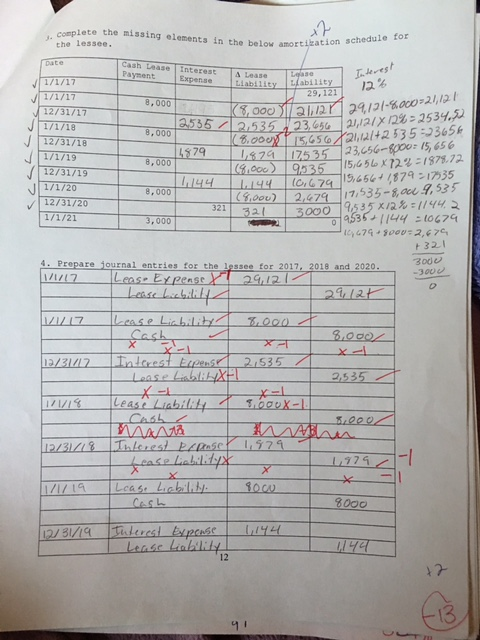 x2
3. Complete the missing elements in the below amortization schedule for
the lessee.
Date Cash Lease Payment Interest Expense Δ Lease Liability Lease Liability
1/1/17 29,121
1/1/17 8,000 (8,000) 21,121
12/31/17 2535 2,535 23,656
1/1/18 8,000 (8,000) 15,656
12/31/18 1,879 1,879 17,535
1/1/19 8,000 (8,000) 9,535
12/31/19 1,144 1,144 10,679
1/1/20 8,000 (8,000) 2,679
12/31/20 321 321 3000
1/1/21 3,000 0
Interest
12%
29,121-8,000=21,121
21,121 x 12% = 2534.52
21,121+2535=23656
23,656-8000=15,656
15,656 x 12% = 1878.72
15,656+1,879=17535
17,535-8,000 9,535
9,535 x 12% = 1144.2
9535+1144=10679
10,679+8000=2,679
+321
3000
-3000
0
4. Prepare journal entries for the lessee for 2017, 2018 and 2020.
1/1/17 Lease Expense x-1 29,121
Lease Liability 29,121
1/1/17 Lease Liability 8,000
Cash 8,000
x x-1 x-1 x-1
12/31/17 Interest Expense 2,535
Lease Liablity x-1 2,535
x-1 x-1
1/1/18 Lease Liability 8,000 x-1
Cash 8,000
12/31/18 Interest Expense 1,879
Lease Liability x 1,879 -1
x x x x -1
1/1/19 Lease Liability 8000
Cash 8000
12/31/19 Interest Expense 1,144
Lease Liability 1,144
12
x2
-13
91